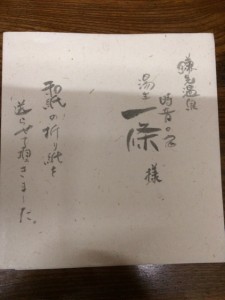 鎌先温泉
時音の宿
湯主一條 様
和紙の折り紙を
送らせて頂きました。